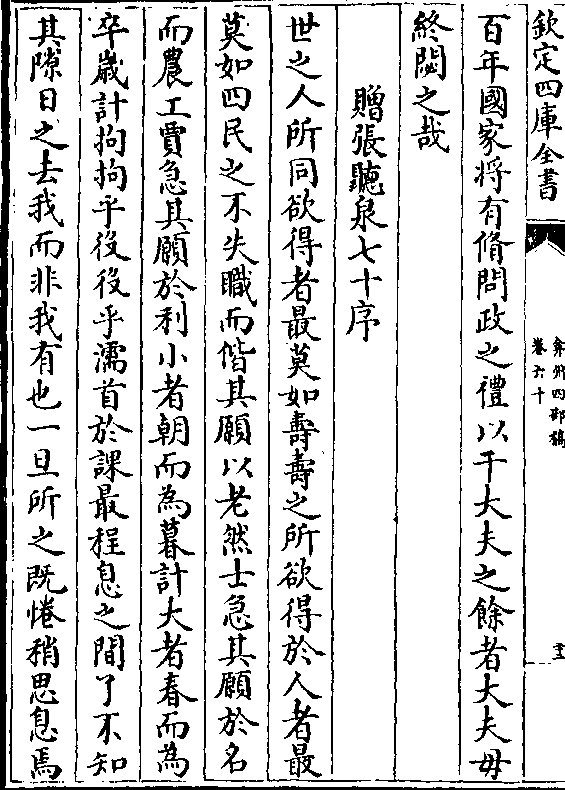 欽定四庫全書
弇州四部稿
卷六十
百年國家將有脩問政之禮以干大夫之餘者大夫毋
終閟之哉
贈張聽泉七十序
世之人所同欲得者最莫如壽壽之所欲得於人者最
莫如四民之不失職而偕其願以老然士急其願於名
而農工賈急其願於利小者朝而為暮計大者春而為
卒歲計拘拘乎役役乎濡首於課最程息之間了不知
其隙日之去我而非我有也一旦所之既惓稍思息焉